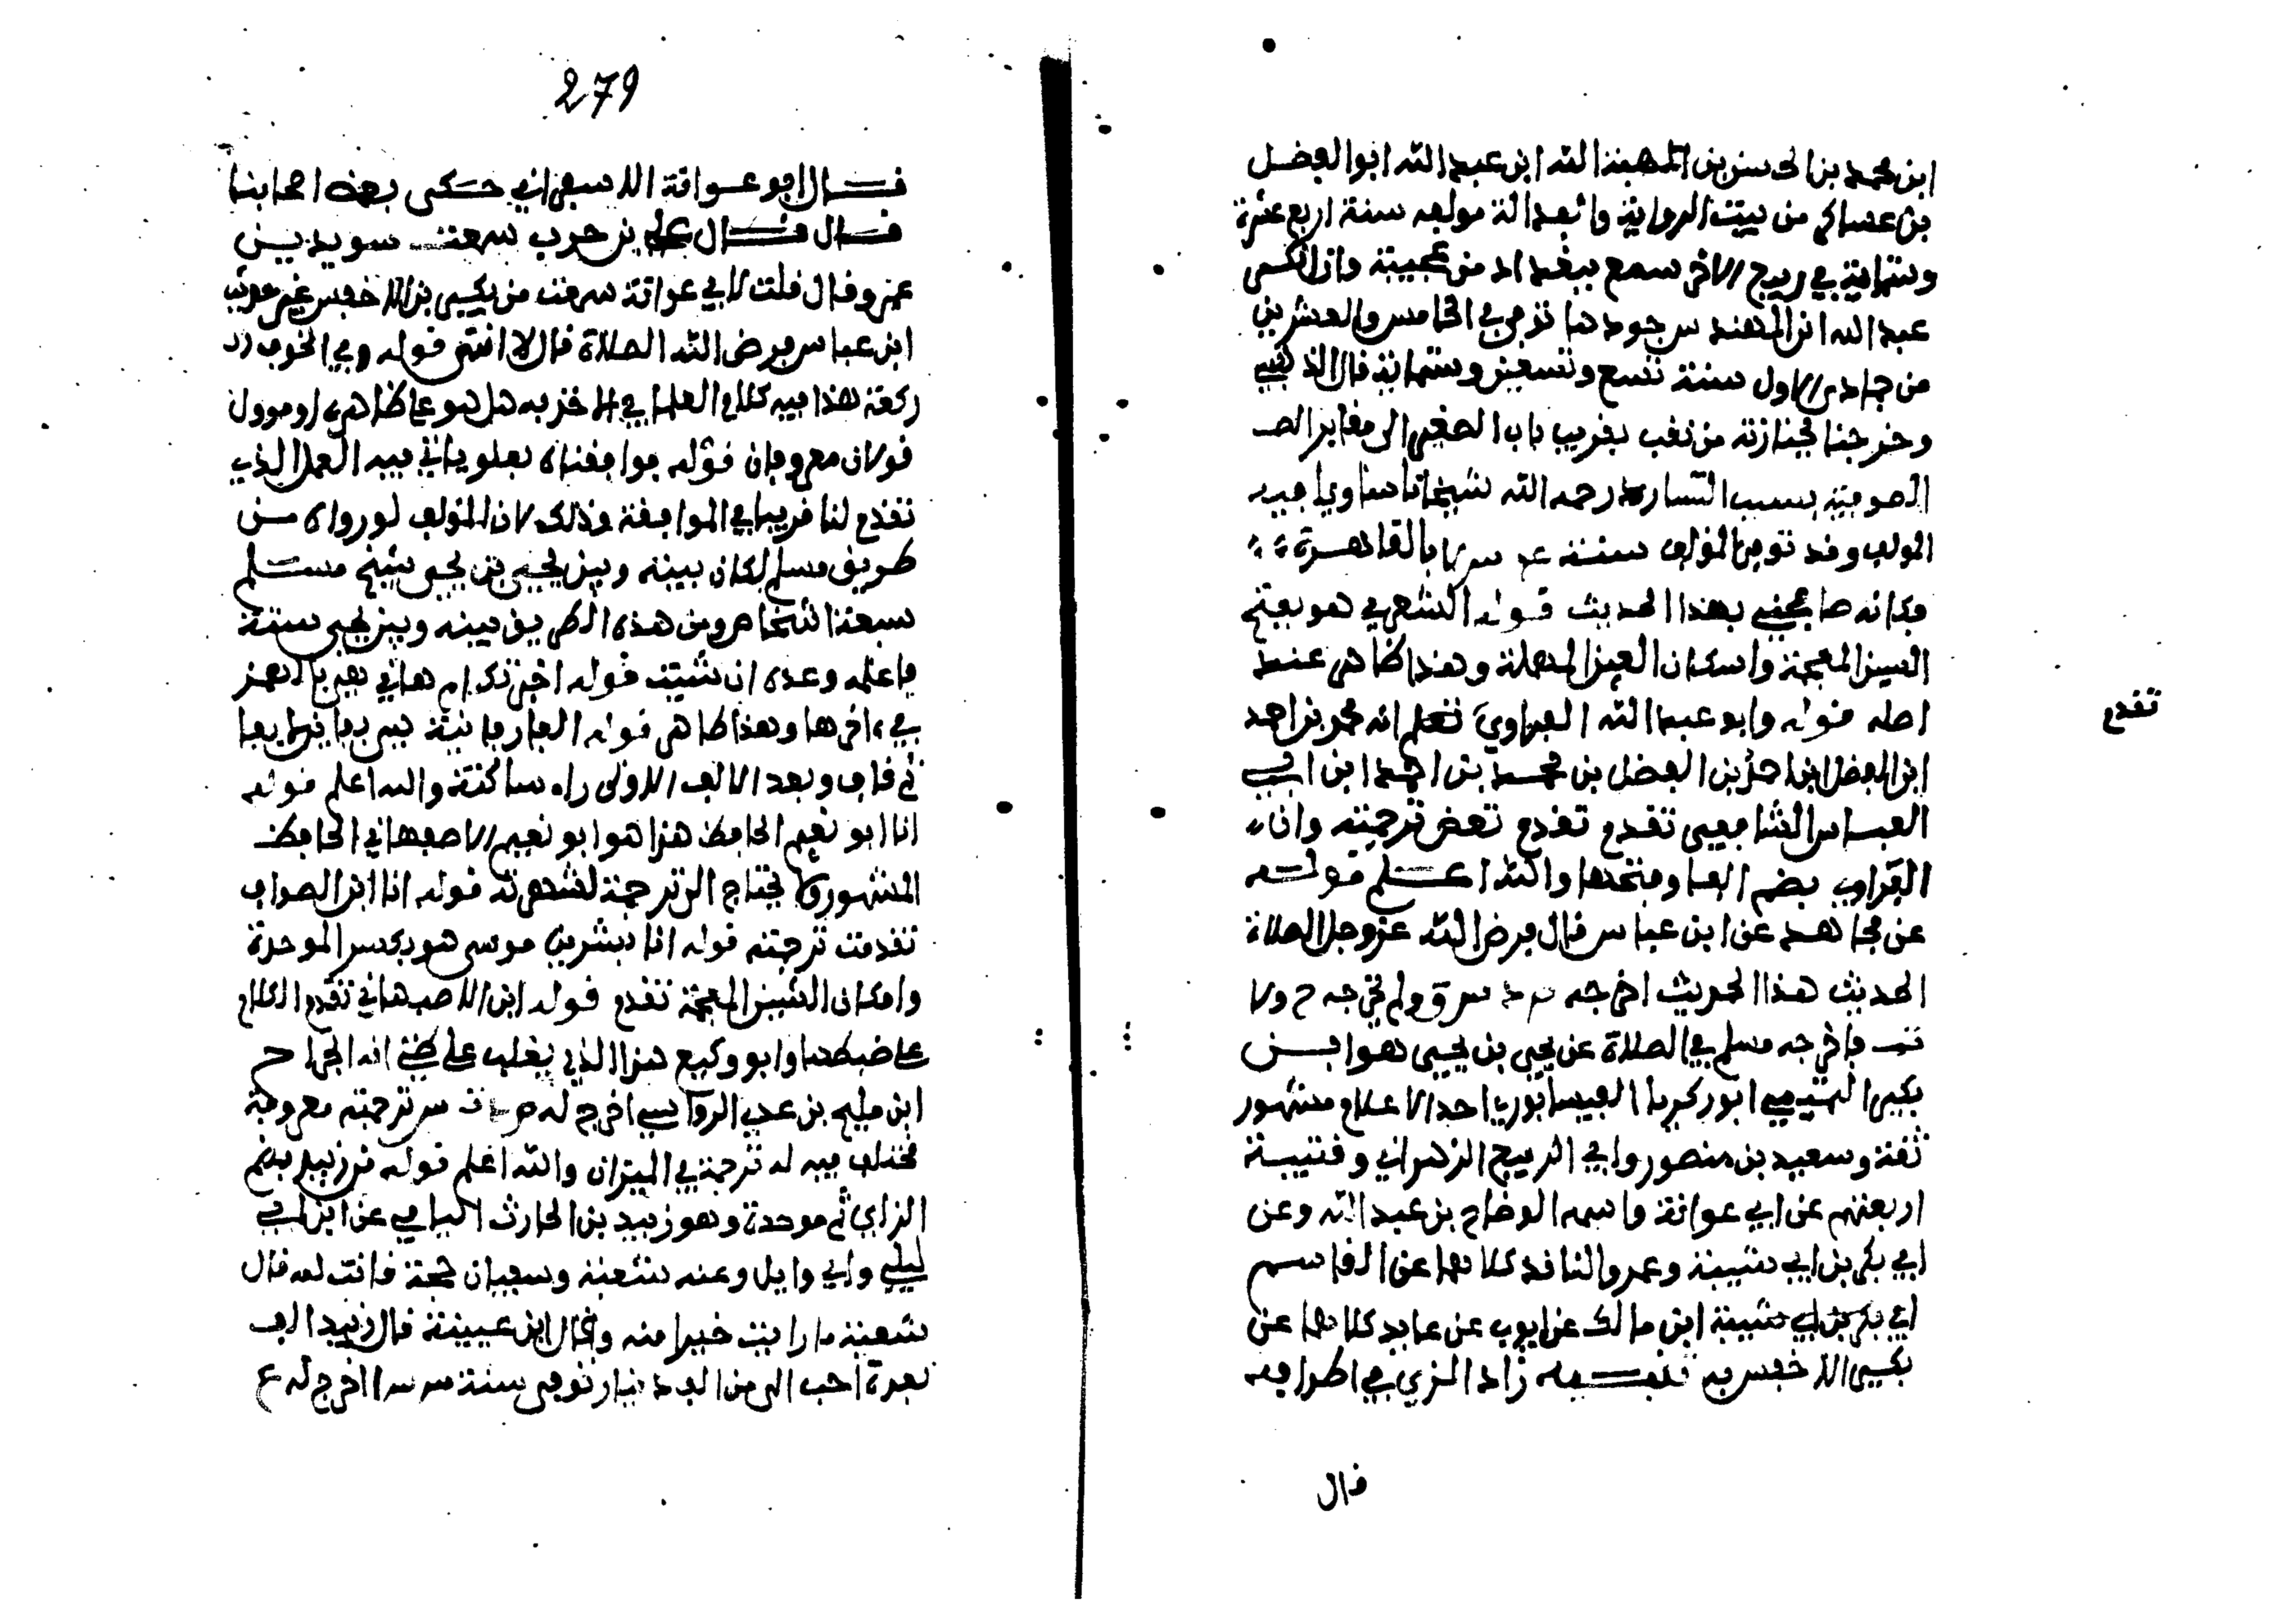 ابن محمد بن الحسن بن هبة الله ابن عبد الله ابو الفضل
بن عساكر من بيت الرواية والعدالة مولده سنة اربع عشرة
وستماية في ربيع الاخر سمع ببغداد من عجيبة وان الكسى
عبد الله ابن المهند س جودها توفي في الخامس والعشرين
من جمادى الاول سنة تسع وتسعين وستماية قال الذهبي
وخرجنا بجنازته من نقب بقرب باب الصغير الى مقابر الصـ
الصوفية بسبب التتار رحمه الله شيخنا تساوي فيه
المولف وقد توفي المولف سنة بالقاهرة
وكانه صافحني بهذا الحديث قوله الشعري هو بفتح
الشين المعجمة واسكان العين المهملة وهذا ظاهر عند
اهله قوله وابو عبد الله الفراوي تقدم انه محمد بن احمد
ابن الفضل ابن احمد بن الفضل بن محمد بن احمد ابن ابي
العباس الشافعي تقدم تقدم بعض ترجمته وان
الفراوي بضم الفا وفتحها والله اعلم قوله
عن مجاهد عن ابن عباس قال فرض الله عز وجل الصلاة
الحديث هذا الحديث اخرجه م د س ق ولم يخرجه خ ولا
ت فاخرجه مسلم في الصلاة عن يحيى بن يحيى هو ابن
بكير التميمي ابو زكريا النيسابوري احد الاعلام مشهور
ثقة وسعيد بن منصور وابي الربيع الزهراني وقتيبة
اربعتهم عن ابي عوانة واسمه الوضاح بن عبد الله وعن
ابي بكر بن ابي شيبة وعمرو الناقد كلاهما عن القاسم
ابي بكر بن ابي شيبة ابن مالك عن ايوب عن عايد كلاهما عن
بكير الاخنس به تنبيه زاد المزي في اطرافه
تقدم
قال
279
قال ابو عوانة الاسفراني حكى بعض اصحابنا
قال قال علي بن حرب سمعت سويد بن
عمرو قال قلت لابي عوانة سمعت من بكير بن الاخنس غير حديث
ابن عباس فرض الله الصلاة قال لا انتهى قوله وفي الخوف
ركعة هذا فيه كلام العلما في الاخذ به هل هو على ظاهره او موول
قولان معروفان قوله موافقناه بعلو ياتي فيه العمل الذي
تقدم لنا قريبا في الموافقة وذلك لان المولف لو رواه من
طريق مسلم لكان بينه وبين يحيى بن يحيى شيخ مسلم
سبعة اشخاص ومن هذه الطريق بينه وبين يحيى ستة
فاعلمه وعده ان شيت قوله اخبرتك ام هاني هي بالهمز
في اخرها وهذا ظاهر قوله الفارفانية هي بفا بين
ثم قاف وبعد الالف الاولى راء ساكنة والله اعلم قوله
انا ابو نعيم الحافظ هذا هو ابو نعيم الاصفهاني الحافظ
المشهور لا يحتاج الى ترجمة لشهرته قوله انا ابن الصواف
تقدمت ترجمته قوله انا بشر بن موسى هو بكسر الموحدة
واسكان الشين المعجمة تقدم قوله ابن الاصبهاني تقدم الكلام
على ضبطها وابو وكيع هذا الذي يغلب على ظني انه الجراح
ابن مليح بن عدي الرواسي اخرج له ترجمته معروفة
مختلف فيه له ترجمة في الميزان والله اعلم قوله عن زبيد بضم
الزاي ثم موحدة وهو زبيد بن الحارث اليامي عن ابن ابي
ليلى وابي وايل وعنه شعبة وسفيان حجة قانت لله قال
شعبة ما رايت خيرا منه وقال ابن عيينة قال زبيد الف
بعرة احب الي من الف دينار توفي سنة اخرج له ع